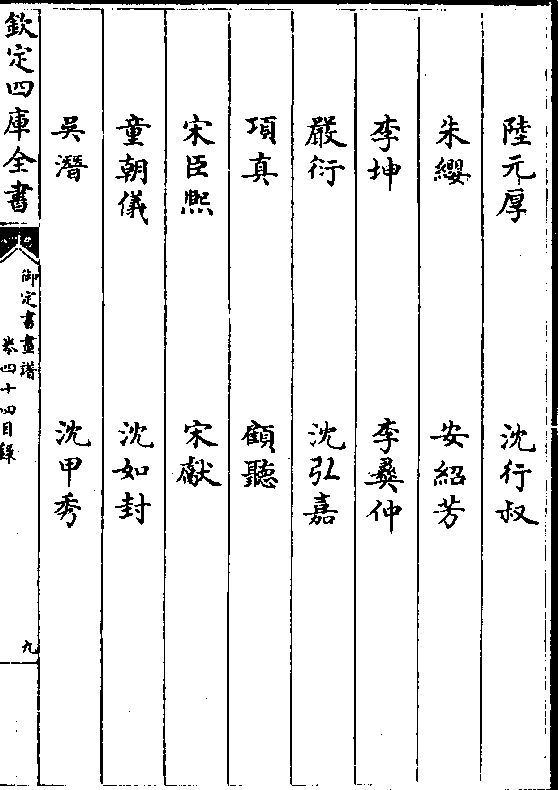 陸元厚 沈行叔
朱纓 安紹芳
李坤 李彝仲
嚴衍 沈弘嘉
項真 顧聽
宋臣熙 宋獻
童朝儀 沈如封
吳潛 沈甲秀
欽定四庫全書
御定書畫譜
卷四十四目錄
九